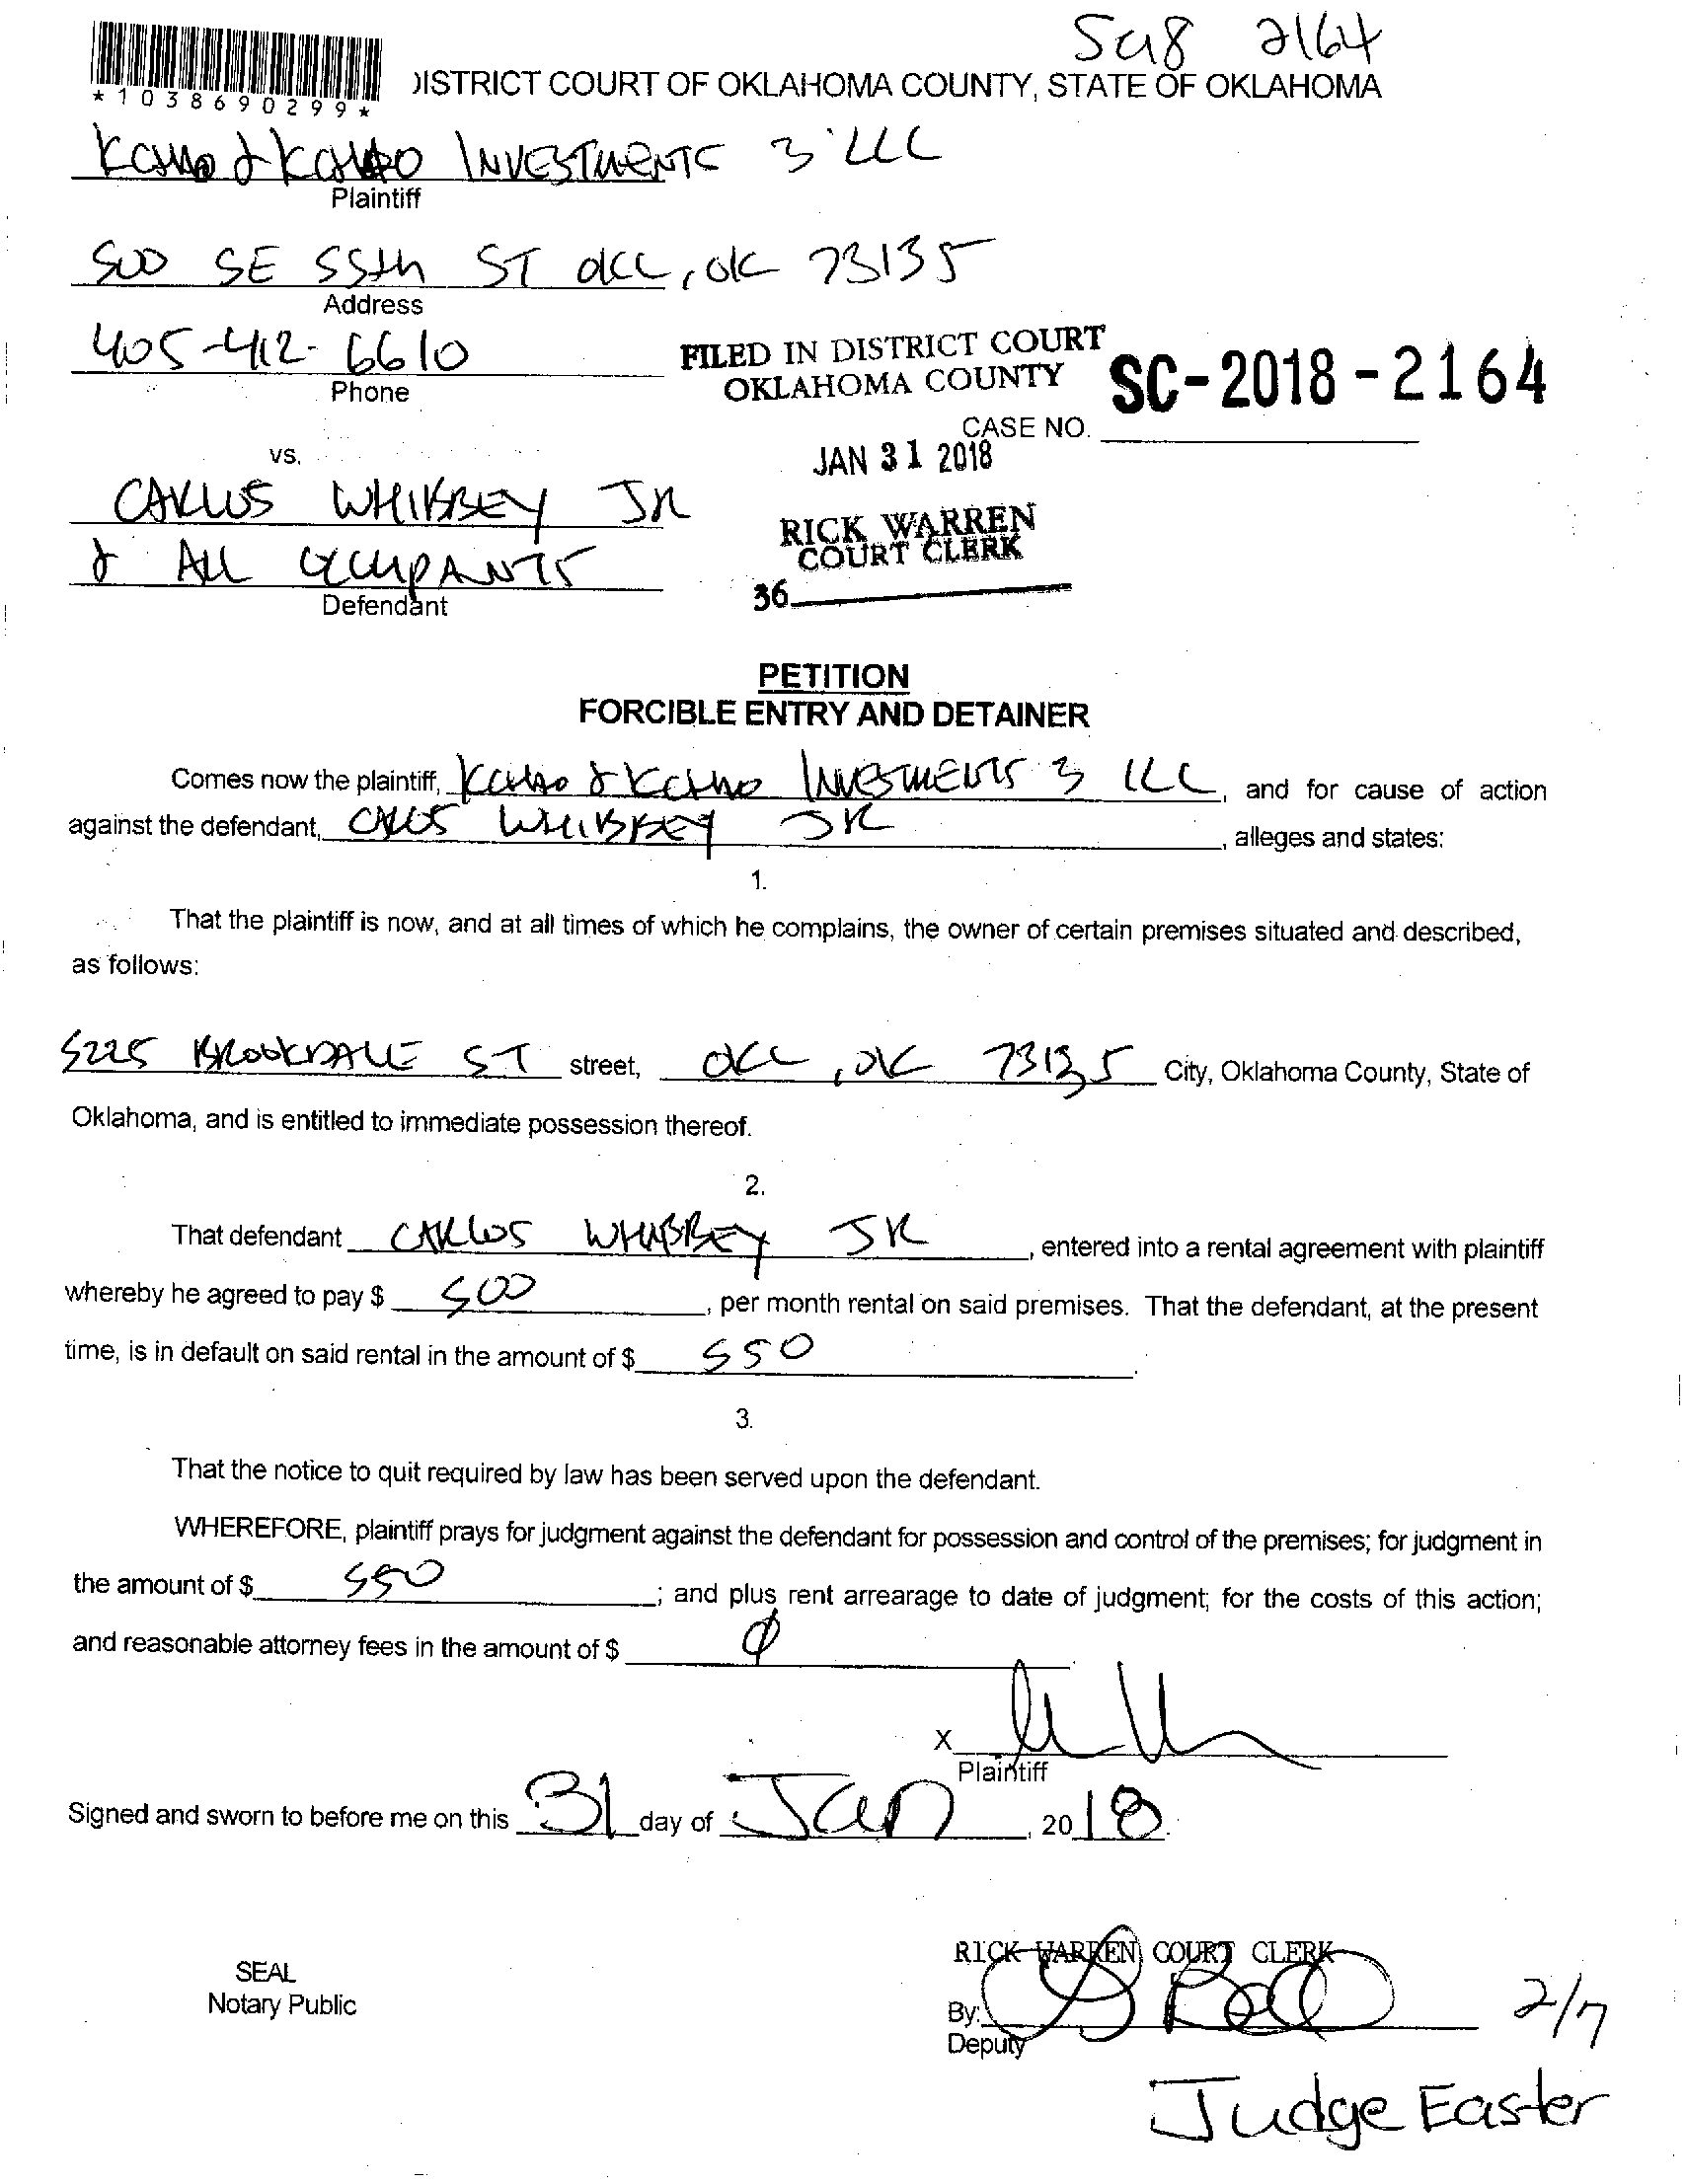 2164
*1038690299*
DISTRICT COURT OF OKLAHOMA COUNTY, STATE OF OKLAHOMA
INVESTMENTS 3 LLC
Plaintiff
SE 55th ST OKC, OK 73135
Address
405-412-6610
Phone
FILED IN DISTRICT COURT
OKLAHOMA COUNTY
SC-2018-2164
CASE NO.
JAN 31 2018
vs.
CARLOS WHIBBEY JR
& ALL OCCUPANTS
Defendant
RICK WARREN
COURT CLERK
36
PETITION
FORCIBLE ENTRY AND DETAINER
Comes now the plaintiff, INVESTMENTS 3 LLC, and for cause of action
against the defendant, CARLOS WHIBBEY JR, alleges and states:
1.
That the plaintiff is now, and at all times of which he complains, the owner of certain premises situated and described,
as follows:
5225 BROOKDALE ST street, OKC, OK 73135 City, Oklahoma County, State of
Oklahoma, and is entitled to immediate possession thereof.
2.
That defendant CARLOS WHIBBEY JR, entered into a rental agreement with plaintiff
whereby he agreed to pay $ 500, per month rental on said premises. That the defendant, at the present
time, is in default on said rental in the amount of $ 550.
3.
That the notice to quit required by law has been served upon the defendant.
WHEREFORE, plaintiff prays for judgment against the defendant for possession and control of the premises; for judgment in
the amount of $ 550; and plus rent arrearage to date of judgment; for the costs of this action;
and reasonable attorney fees in the amount of $ Ø
X
Plaintiff
Signed and sworn to before me on this 31 day of Jan, 2018.
RICK WARREN COURT CLERK
SEAL
Notary Public
By:
Deputy
2/7
Judge Easter